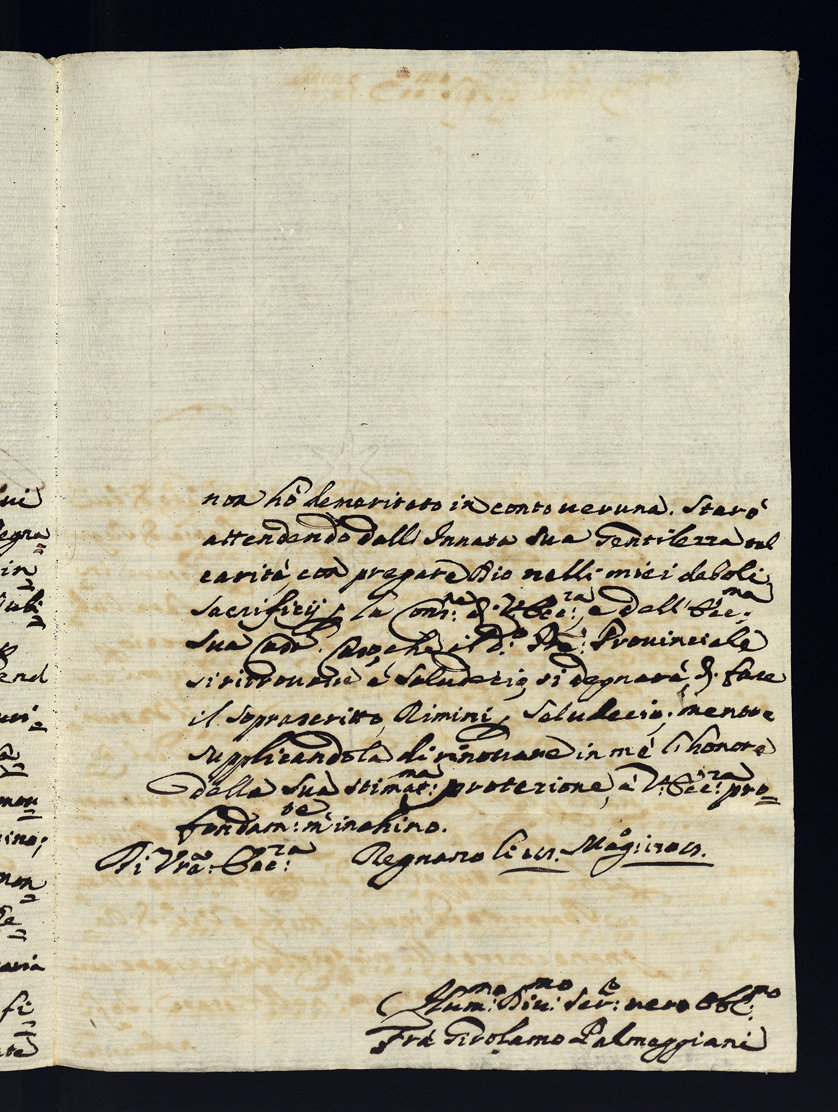 lui
degna
in
end
non
fi
non hó demeritato in conto veruno. Staró
attendendo dall'Innata sua Gentilezza tal
carità, con pregare Dio nelli miei deboli
sacrificij, la Con: di V: Ecc:za, e dell'Ecc:ma
sua Casa. Caso che il d:o Pre: Provinciale
si ritrovasse à Saludecio, si degnará di fare
il soprascritto, Rimini, Saludecio; mentre
supplicandola di rinovare in mé l'honore
della sua stimat:ma protezione, á V: Ecc:za pro=
fondam:te m'inchino.
Di Vra Ecc:za
Regnano li 25: Mag:o 1705.
Hum:mo Div:mo Ser:e vero Obb:mo
Fra Girolamo Palmeggiani